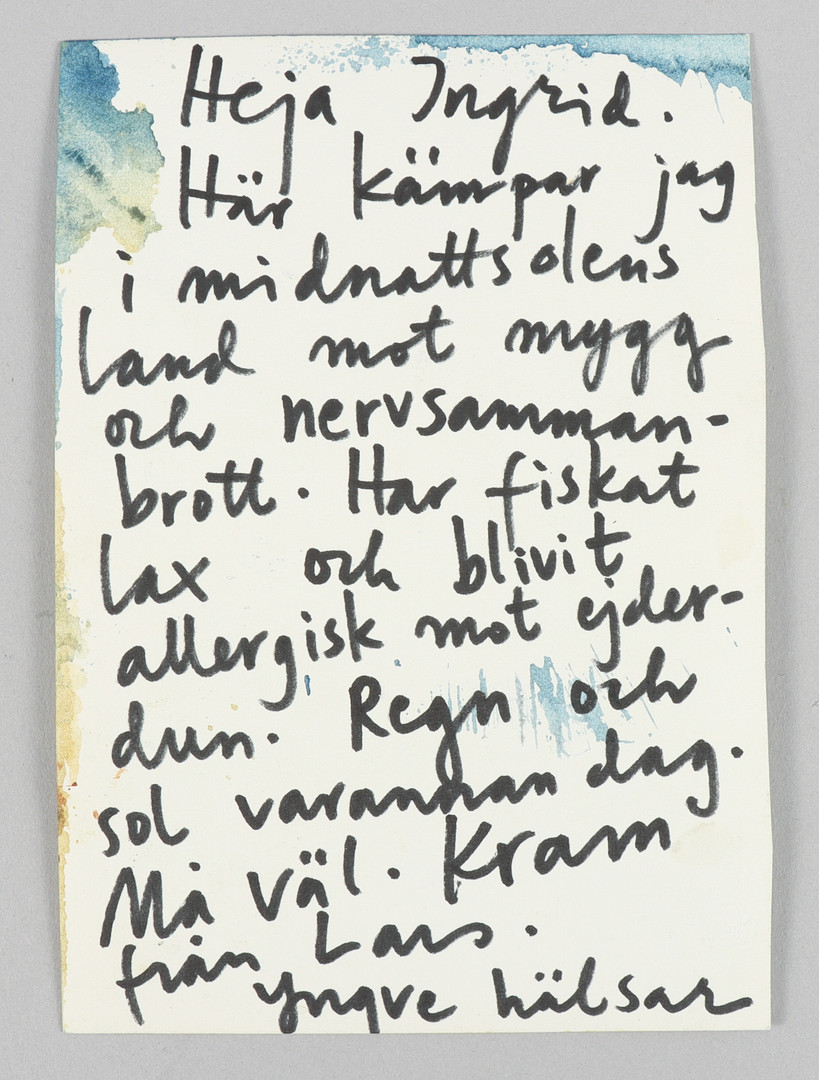 Heja Ingrid.
Här kämpar jag
i midnattsolens
land mot mygg
och nervsamman-
brott. Har fiskat
lax och blivit
allergisk mot ejder-
dun. Regn och
sol varannan dag.
Må väl. Kram
från Lars.
Yngve hälsar